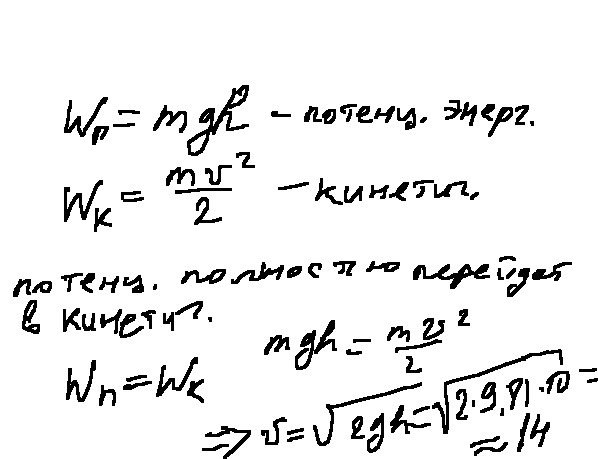 Wп = mgh - потенц. энерг.
Wк = mv²/2 - кинетич.
потенц. полностью перейдет
в кинетич.
mgh = mv²/2
Wп = Wк
=> v = √2gh = √2·9,81·10 =
≈ 14